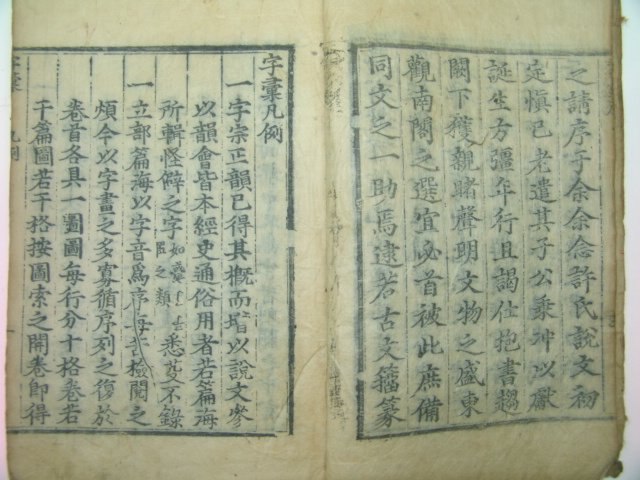 之請序于余余念許氏說文初
定愼已老遣其子公乘冲以獻
誕生方彊年行且謁仕抱書趨
闕下獲親睹聲明文物之盛東
觀南閣之選宜必首被此庶備
同文之一助焉逮若古文籀篆
字彙凡例
一字宗正韻已得其槪而增以說文參
以韻會皆本經史通俗用者若篇海
所輯怪僻之字之類悉芟不錄
一立部篇海以字音爲序每苦檢閱之
煩今以字畫之多寡循序列之復於
卷首各具一圖圖每行分十格卷若
干篇圖若干格按圖索之開卷卽得
字彙 凡例